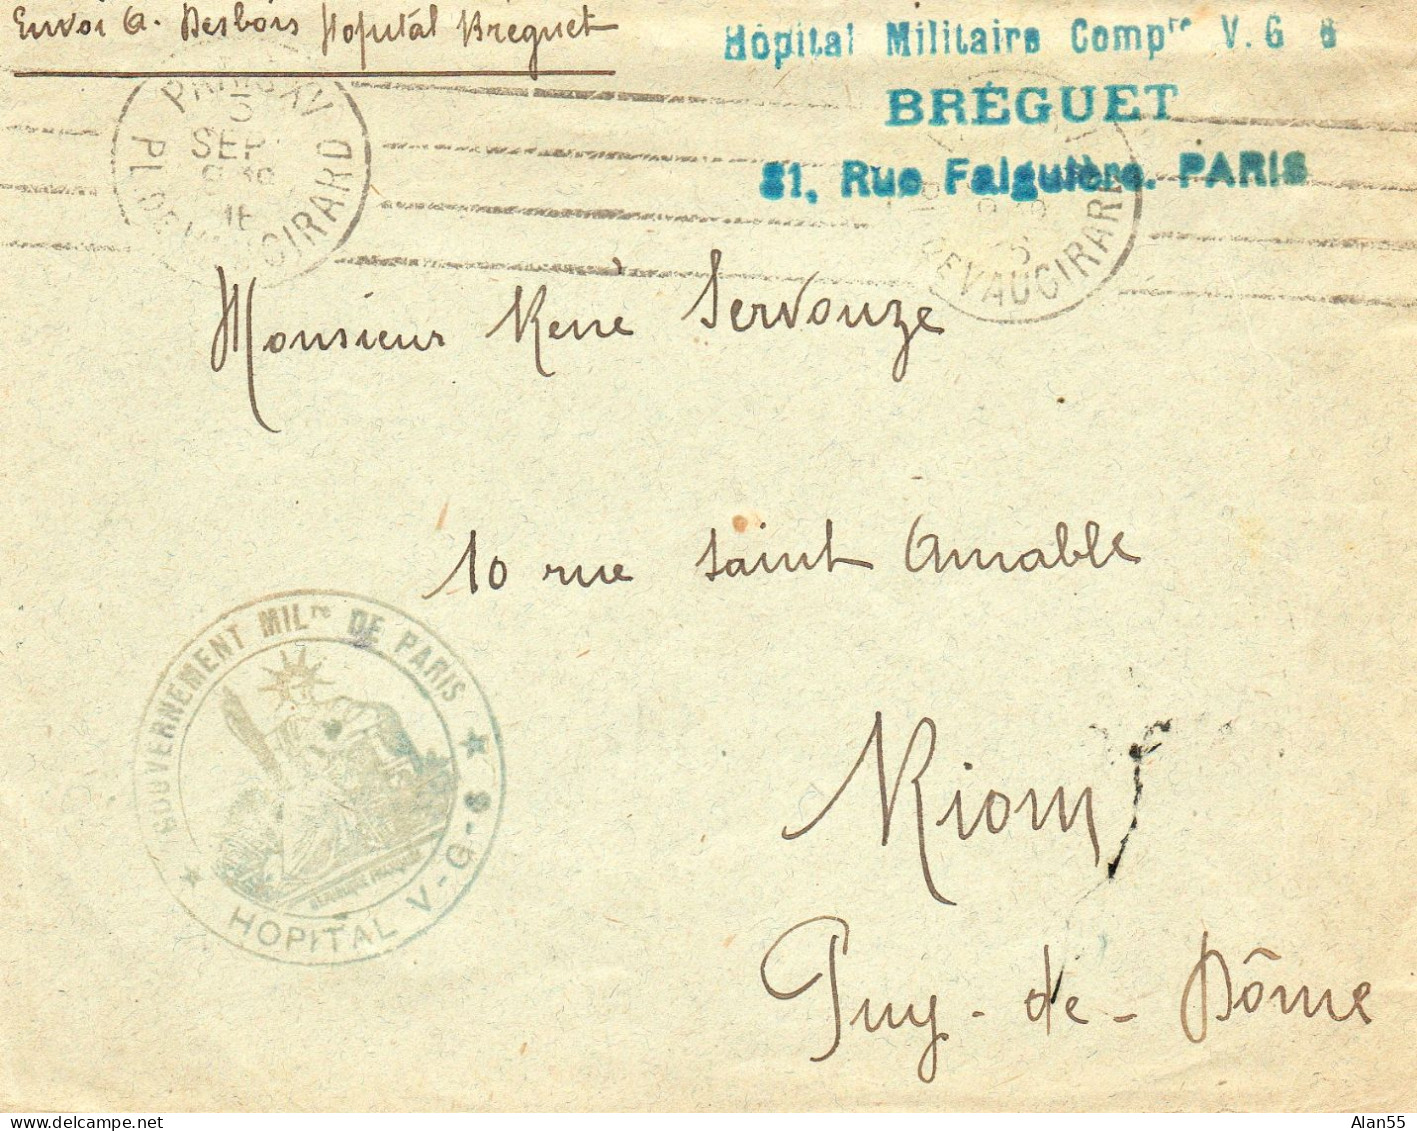 Envoi A. Desbois Hopital Breguet
Hôpital Militaire Compre V.G 6
BRÉGUET
81, Rue Falguière. PARIS
PARIS XV
5
SEPT
16
PL. DE VAUGIRARD
DE VAUGIRARD
Monsieur René Servouze
10 rue Saint Amable
Riom
Puy-de-Dôme
GOUVERNEMENT MILre DE PARIS
RÉPUBLIQUE FRANÇAISE
★ HOPITAL V-G-6 ★
Alan55